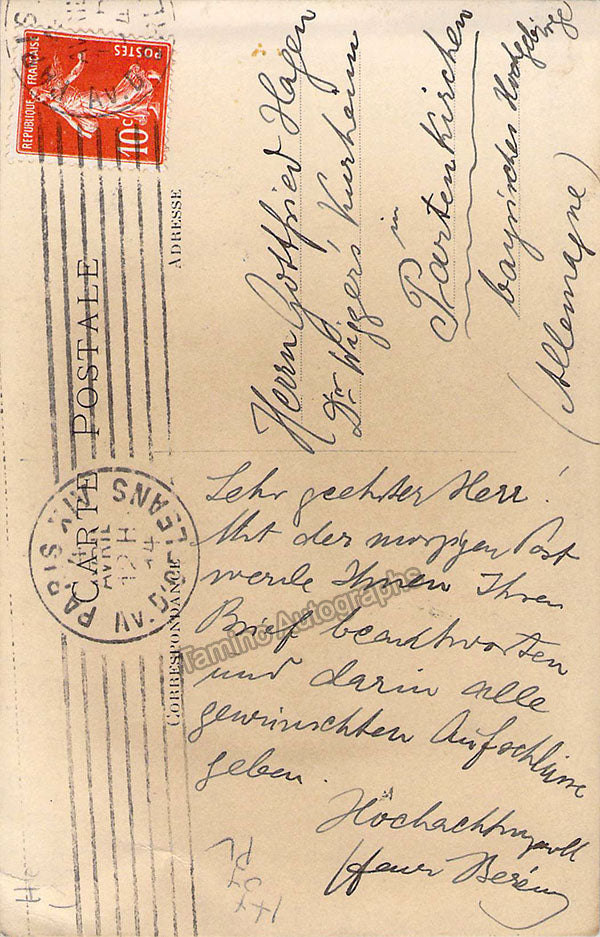 RÉPUBLIQUE FRANÇAISE
POSTES
10c
CARTE POSTALE
ADRESSE
CORRESPONDANCE
PARIS XIV
AVRIL
12 H
14
AV. D'ORLEANS
Herrn Gottfried Hagen
Dr Wigger's Kurheim
in
Partenkirchen
bayrisches Hochgebirge
(Allemagne)
Sehr geehrter Herr!
Mit der morgigen Post
werde Ihnen Ihren
Brief beantworten
und darin alle
gewünschten Aufschlüsse
geben.
Hochachtungsvoll
Henri
Tamino Autographs